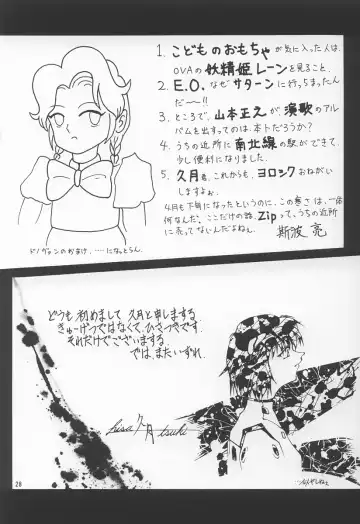 1. こどものおもちゃが気に入った人は、
OVAの妖精姫レーンを見ること。
2. E.O.なぜサターンに行っちまったん
だ〜!!
3. ところで、山本正之が演歌のアル
バムを出すってのは本トだろうか?
4. うちの近所に南北線の駅ができて、
少し便利になりました。
5. 久月君、これからも、ヨロシクおねがい
しますよぉ。
4月も下旬になったというのに、この寒さは、一体
何なんだ、ここだけの話、Zipって、うちの近所
に売ってないんだよねぇ。
斯波 亮
どうも初めまして久月と申しまする。
きゅーげつではなくて、ひさつきです。
それだけでございまする。
では、またいずれ。
hisa久月tsuki
28